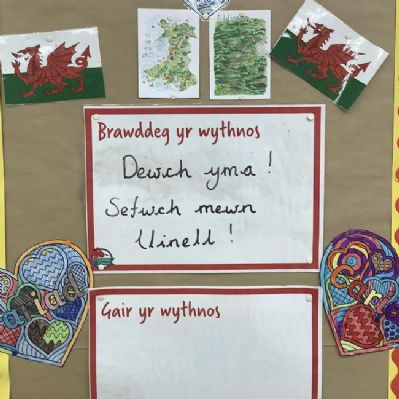 Brawddeg yr wythnos
Dewch yma!
Sefwch mewn
llinell!
Gair yr wythnos